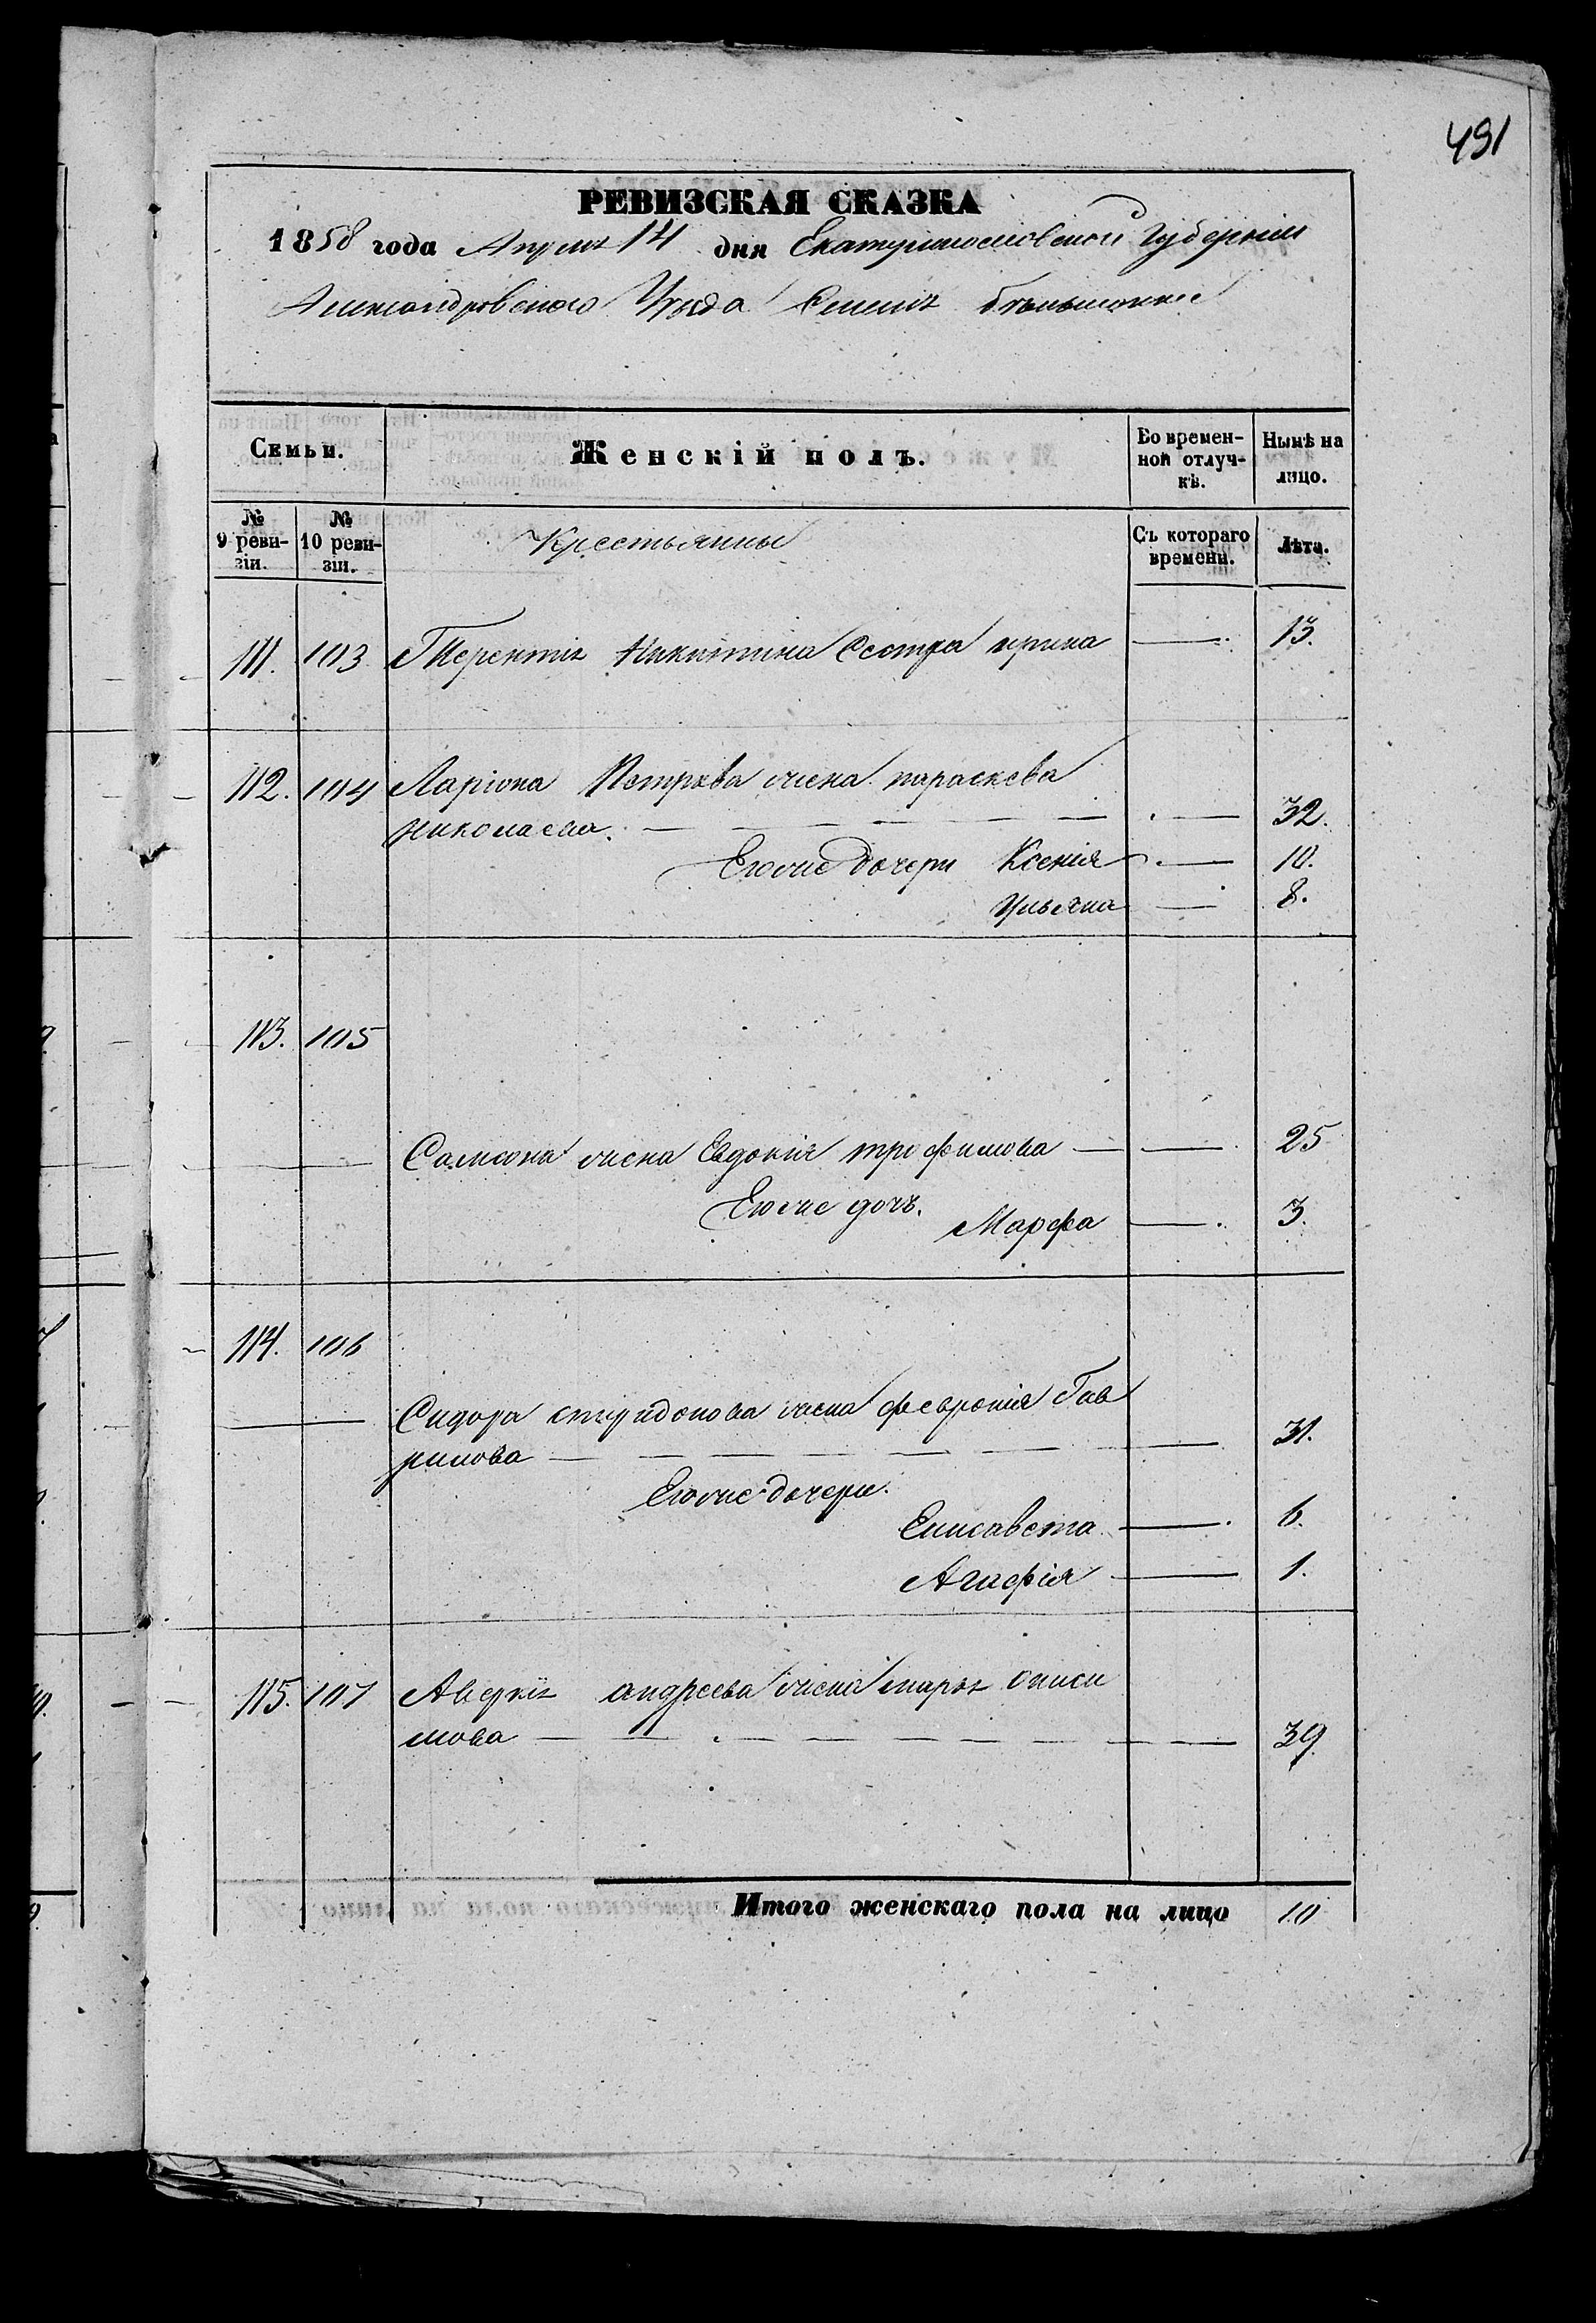 491
РЕВИЗСКАЯ СКАЗКА
1858 года Апреля 14 дня Екатеринославской Губерніи
Александровского Уезда Селенія
Семьи.
Женскій полъ.
Во времен-
ной отлуч-
кѣ.
Нынѣ на
лицо.
№
9 реви-
зіи.
№
10 реви-
зіи.
Крестьянны
Съ котораго
времени.
Лѣта.
111. 103 Терентія Никитина Сестра ирина 13.
112. 104 Ларіона Петрова жена параскева
николаева 32.
Егоже дочери Ксенія 10.
Ульяна 8.
113. 105
Самсона жена Евдокія трофимова 25
Егоже дочь.
Марфа 3.
114. 106
Сидора спиридонова жена фееронія Гав
рилова 31.
Егоже дочери.
Елисавета 6.
Агафія 1.
115. 107 Аверкія андреева жена марья Ониси
мова 39
Итого женскаго пола на лицо 10